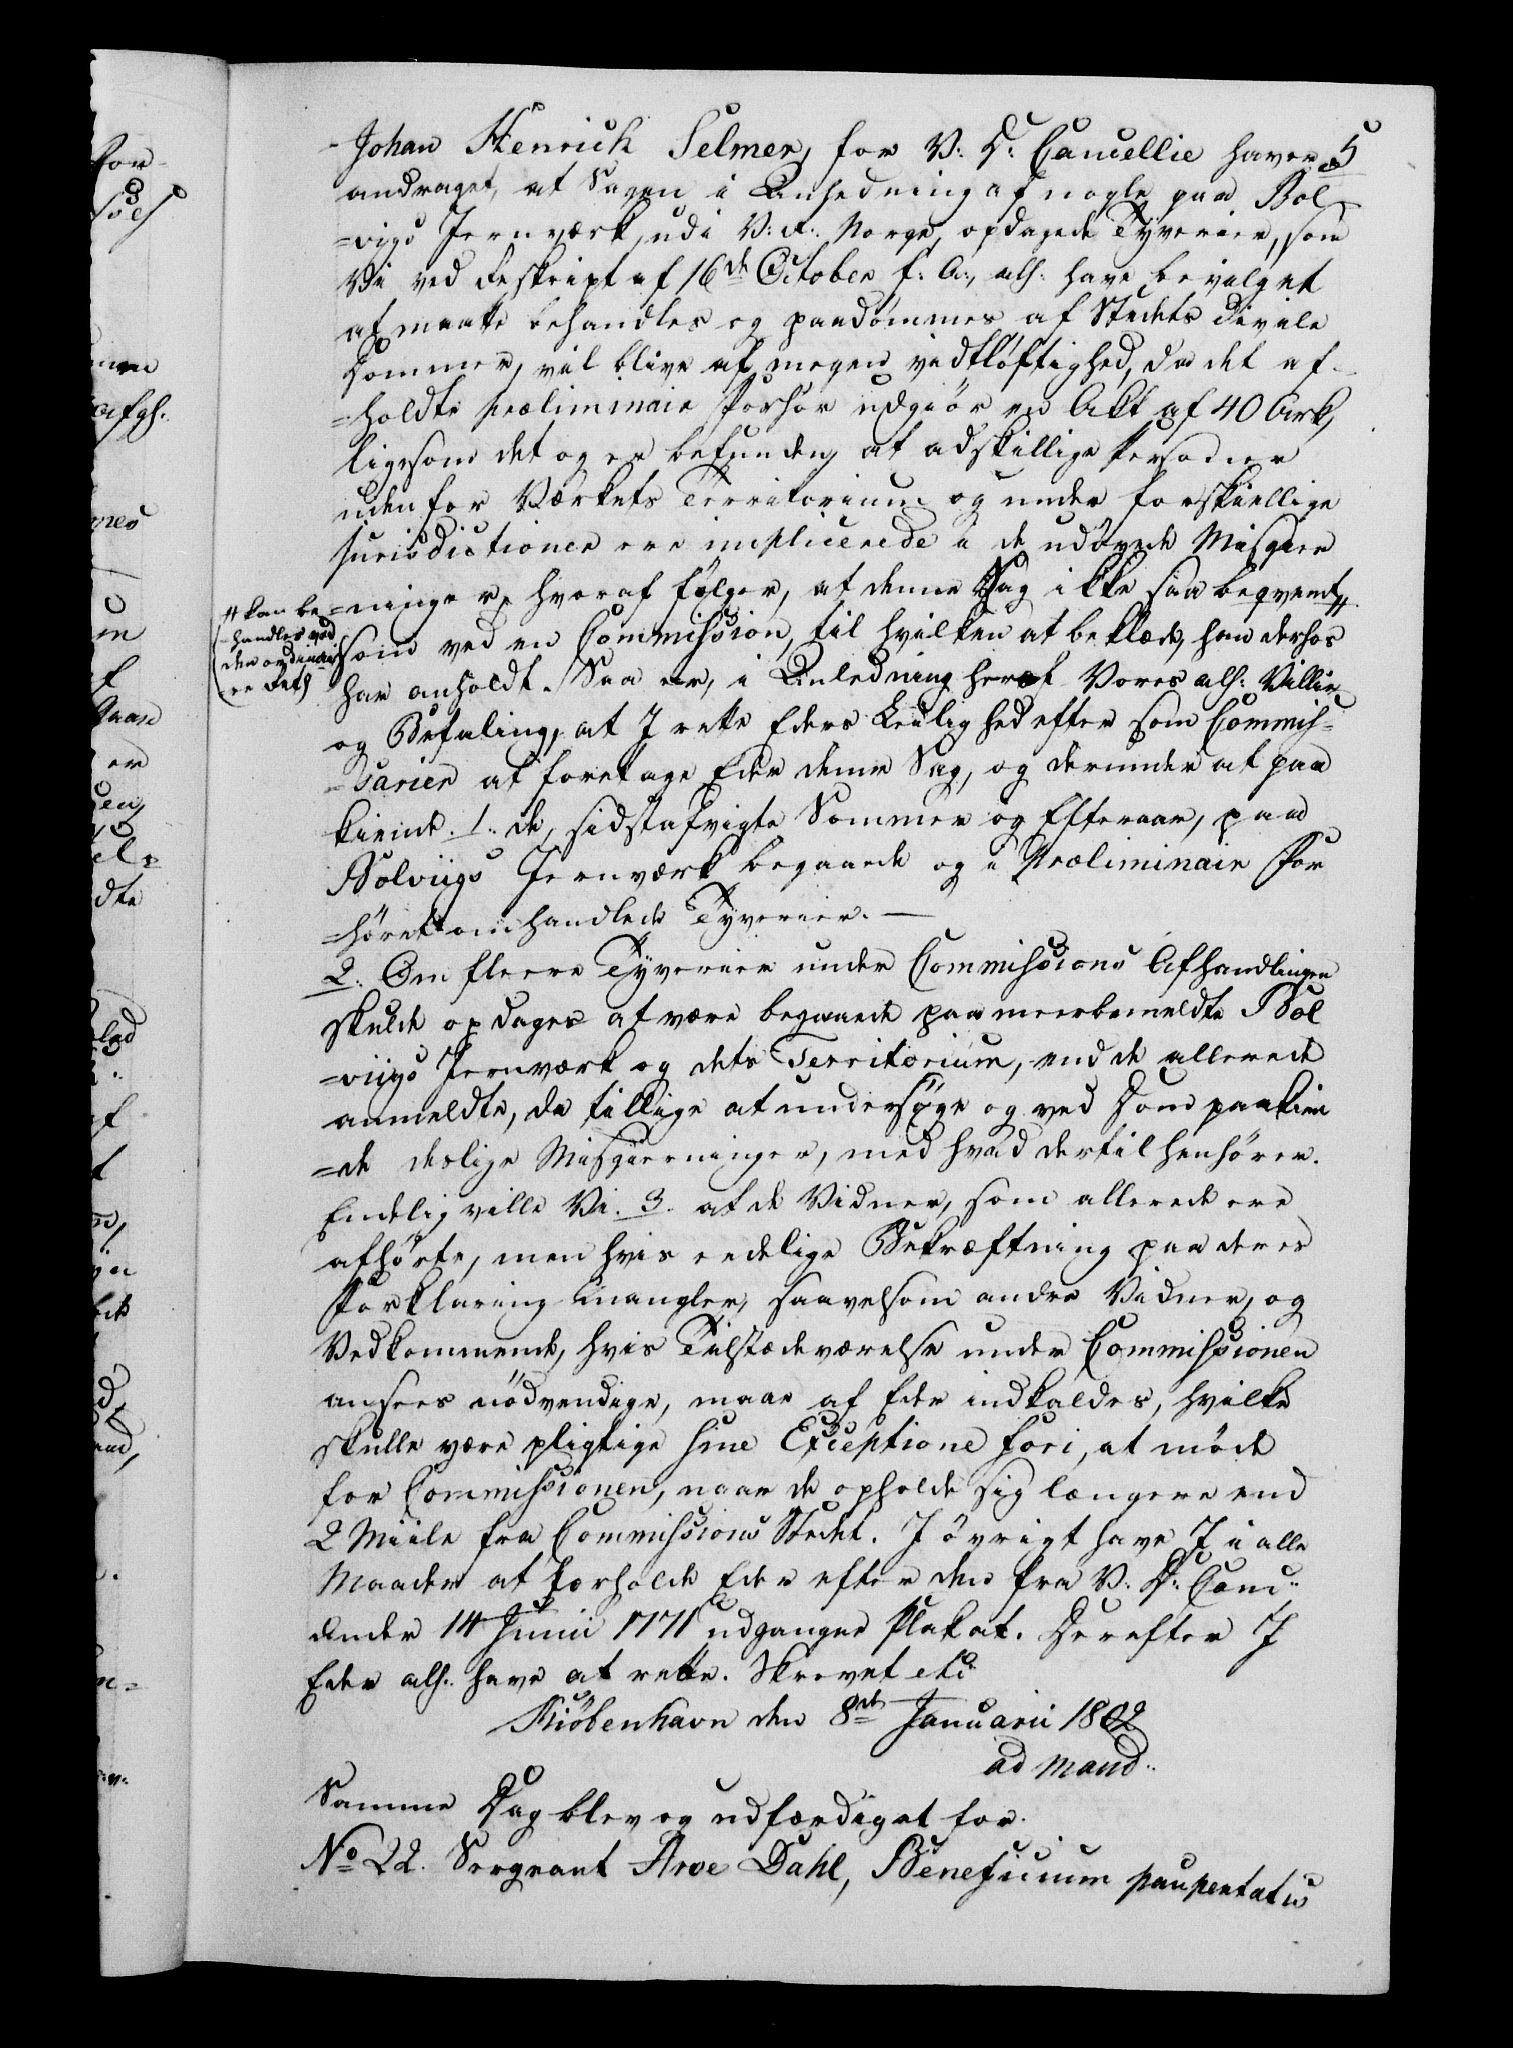 Johan Henrich Selmer, for V: D: Cancellie haver 5
andraget, at Sagen i Anledning af nogle paa Bol-
=vigs Jernværk, udi V: R: Norge, opdagede Tyverier, som
Vi ved Reskript af 16de October f: A:, alh: have bevilget
at maatte behandles og paadømmes af Stedets Civile
Dommer, vil blive af megen vidtløftighed, da det af-
=holdte præliminair Forhör udgiör en Akt af 40 Ark,
ligesom det og er befunden, at adskillige Personer
uden for Værkets Territorium og under forskiellige
Jurisdictioner ere implicerede i de udövede Misgier
=ninger, hvoraf fölger, at denne Sag ikke saa beqvemt //
// kan be-
=handles ved
den ordinai-
re Ret
som ved en Commission, til hvilken at beklæde, han derhos
har anholdt. Saa er, i Anledning heraf Vores alh: Villie
og Befaling, at I rette Eders Leilighed efter som Commis-
=sarier at foretage Eder denne Sag, og derunder at paa
kiende. 1. de, sidstafvigte Sommer og Efteraar, paa
Bolviigs Jernværk begaaede og i Præliminair For
=höret omhandlede Tyverier. —
2. Om fleere Tyverier under Commissions Afhandlingen
skulde opdages at være begaaede paa meerbemeldte Bol
=viigs Jernværk og dets Territorium, end de allerede
anmeldte, da tillige at undersöge og ved Dom paakien
=de deslige Misgierninger, med hvad dertil henhörer.
Endelig ville Vi. 3. at de Vidner, som allerede ere
afhörte, men hvis eedelige Bekræftning paa deres
Forklaring mangler, saavelsom andre Vidner, og
Vedkommende, hvis Tilstædeværelse under Commissionen
ansees nödvendige, maae af Eder indkaldes, hvilke
skulle være pligtige sine Exceptione fori, at möde
for Commissionen, naar de opholde sig længere end
2 Miile fra Commissions Stedet. I övrigt have I i alle
Maader at forholde Eder efter den fra V: D: Canc:
under 14 Junii 1771 udgangne Plakat. Derefter I
Eder alh: have at rette. Skrevet etc
Kiöbenhavn den 8de Januarii 1802
ad Mand:
Samme Dag blev og udfærdiget for.
No 22. Sergeant Arve Dahl, Beneficium paupertatis